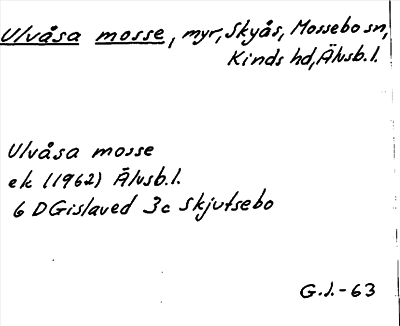 Ulvåsa mosse, myr, Skyås, Mossebo sn,
Kinds hd, Älvsb.l.
Ulvåsa mosse
ek (1962) Älvsb.l.
6 D Gislaved 3c Skjutsebo
G.J.-63